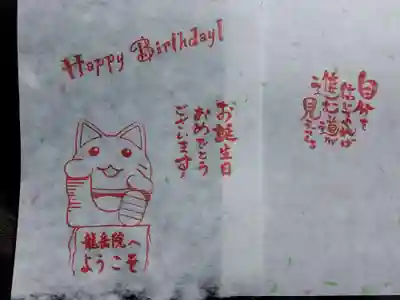 Happy Birthday!
自分を
信じれば
進む道が
う見えるな
お誕生日
おめでとう
ございます!
龍岳院へ
ようこそ